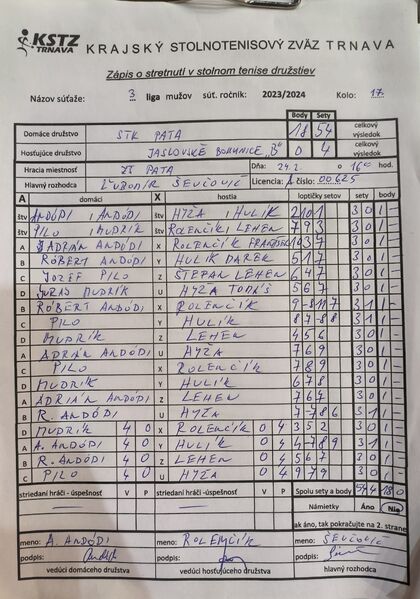 KSTZ TRNAVA KRAJSKÝ STOLNOTENISOVÝ ZVÄZ TRNAVA
Zápis o stretnutí v stolnom tenise družstiev
Názov súťaže: 3 liga mužov súť. ročník: 2023/2024 Kolo: 17.
Body Sety
Domáce družstvo STK PATA 18 54 celkový výsledok
Hosťujúce družstvo JASLOVSKÉ BOHUNICE "B" 0 4 celkový výsledok
Hracia miestnosť ZŠ PATA Dňa: 24.2. o 16 hod.
Hlavný rozhodca ĽUBOMÍR ŠEVČOVIČ Licencia, číslo: 00625
A domáci X hostia loptičky setov sety body
štv ANDÓDI, ANDÓDI štv HÝŽA, HULÍK 3 0 1 -
štv PILO, MUDRÍK štv ROLENČÍK, LEHEN 7 9 3 3 0 1 -
A ADRIÁN ANDÓDI X ROLENČÍK 3 0 1 -
B RÓBERT ANDÓDI Y HULÍK DAREK 5 1 7 3 0 1 -
C JOZEF PILO Z ŠTEFAN LEHEN 6 4 7 3 0 1 -
D JURAJ MUDRÍK U HÝŽA TOMÁŠ 5 6 7 3 0 1 -
B RÓBERT ANDÓDI X ROLENČÍK 3 1 1 -
C PILO Y HULÍK 8 7 -8 8 3 1 1 -
D MUDRÍK Z LEHEN 4 5 6 3 0 1 -
A ADRIÁN ANDÓDI U HÝŽA 7 6 9 3 0 1 -
C PILO X ROLENČÍK 7 8 9 3 0 1 -
D MUDRÍK Y HULÍK 6 7 8 3 0 1 -
A ADRIÁN ANDÓDI Z LEHEN 3 0 1 -
B R. ANDÓDI U HÝŽA 7 -7 8 6 3 1 1 -
D MUDRÍK 4 0 X ROLENČÍK 0 4 3 5 2 3 0 1 -
A A. ANDÓDI 4 0 Y HULÍK 0 4 4 -7 8 9 3 1 1 -
B R. ANDÓDI 4 0 Z LEHEN 0 4 5 6 7 3 0 1 -
C PILO 4 0 U HÝŽA 0 4 9 7 9 3 0 1 -
striedaní hráči - úspešnosť V P striedaní hráči - úspešnosť V P Spolu sety a body 54 4 18 0
Námietky Áno Nie
ak áno, tak pokračujte na 2. strane
meno: A. ANDÓDI meno: ROLENČÍK meno: ŠEVČOVIČ
podpis: podpis: podpis:
vedúci domáceho družstva vedúci hosťujúceho družstva hlavný rozhodca